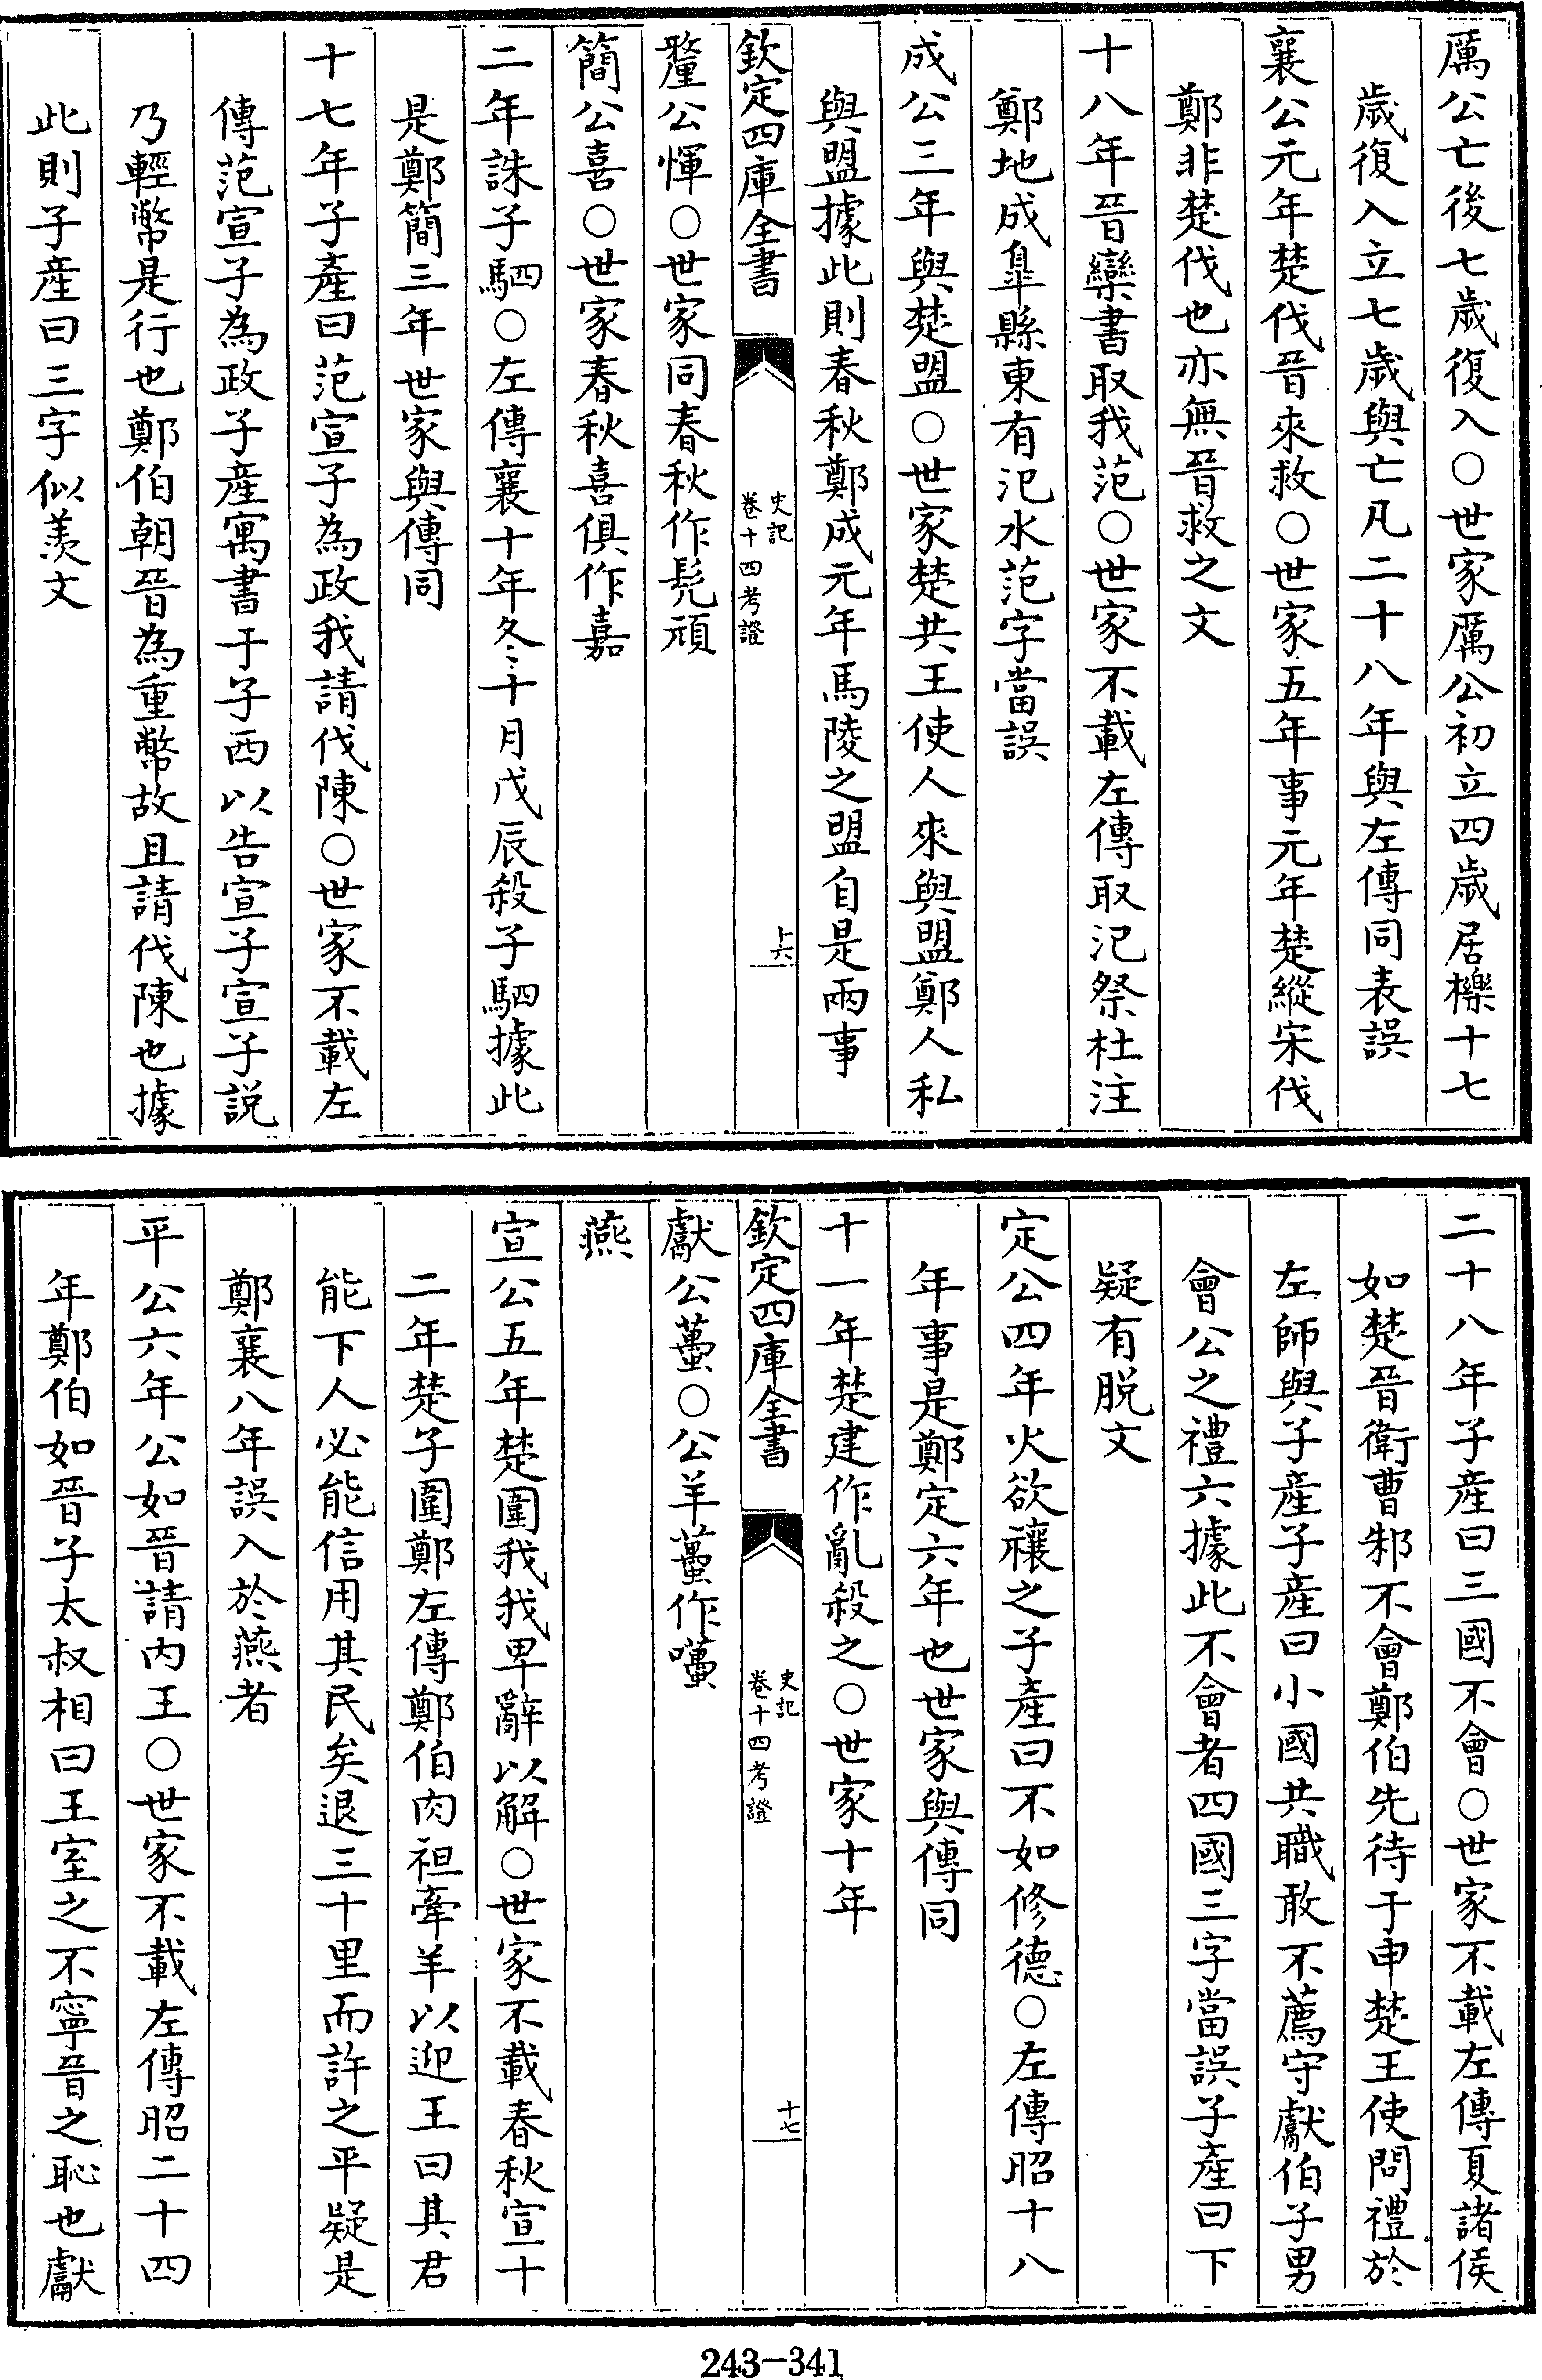 厲公亡後七歲復入○世家厲公初立四歲居櫟十七
歲復入立七歲與亡凡二十八年與左傳同表誤
襄公元年楚伐晉來救○世家五年事元年楚縱宋伐
鄭非楚伐也亦無晉救之文
十八年晉欒書取我范○世家不載左傳取汜祭杜注
鄭地成臯縣東有汜水范字當誤
成公三年與楚盟○世家楚共王使人來與盟鄭人私
與盟據此則春秋鄭成元年馬陵之盟自是兩事
欽定四庫全書
史記
卷十四考證
十六
釐公惲○世家同春秋作髡頑
簡公喜○世家春秋喜俱作嘉
二年誅子駟○左傳襄十年冬十月戊辰殺子駟據此
是鄭簡三年世家與傳同
十七年子產曰范宣子為政我請伐陳○世家不載左
傳范宣子為政子產寓書于子西以告宣子宣子説
乃輕幣是行也鄭伯朝晉為重幣故且請伐陳也據
此則子產曰三字似羨文
二十八年子產曰三國不會○世家不載左傳夏諸侯
如楚晉衛曹邾不會鄭伯先待于申楚王使問禮於
左師與子產子產曰小國共職敢不薦守獻伯子男
會公之禮六據此不會者四國三字當誤子產曰下
疑有脱文
定公四年火欲禳之子產曰不如修德○左傳昭十八
年事是鄭定六年也世家與傳同
十一年楚建作亂殺之○世家十年
欽定四庫全書
史記
卷十四考證
十七
獻公蠆○公羊蠆作囆
燕
宣公五年楚圍我我卑辭以解○世家不載春秋宣十
二年楚子圍鄭左傳鄭伯肉袒牽羊以迎王曰其君
能下人必能信用其民矣退三十里而許之平疑是
鄭襄八年誤入於燕者
平公六年公如晉請内王○世家不載左傳昭二十四
年鄭伯如晉子太叔相曰王室之不寧晉之恥也獻
243-341